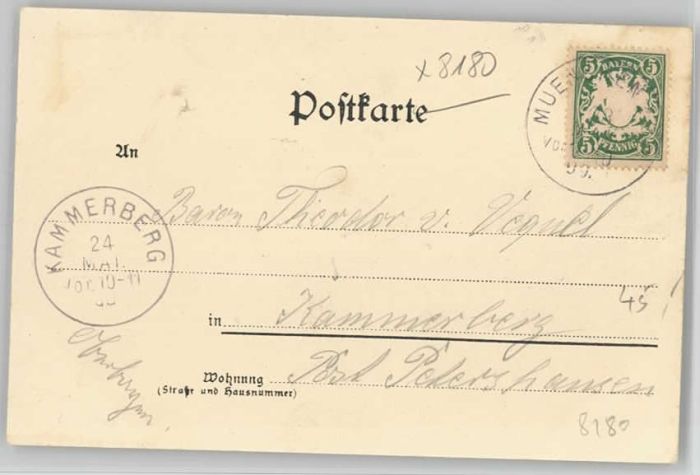 x 8180
5 BAYERN 5
5 PFENNIG 5
MUE
Vor
Postkarte
An
Baron Theodor v.
KAMMERBERG
24
MAI.
Vor. 10-11
45!
in Kammerberg
Wohnung Post Petershausen
(Straße und Hausnummer)
8180